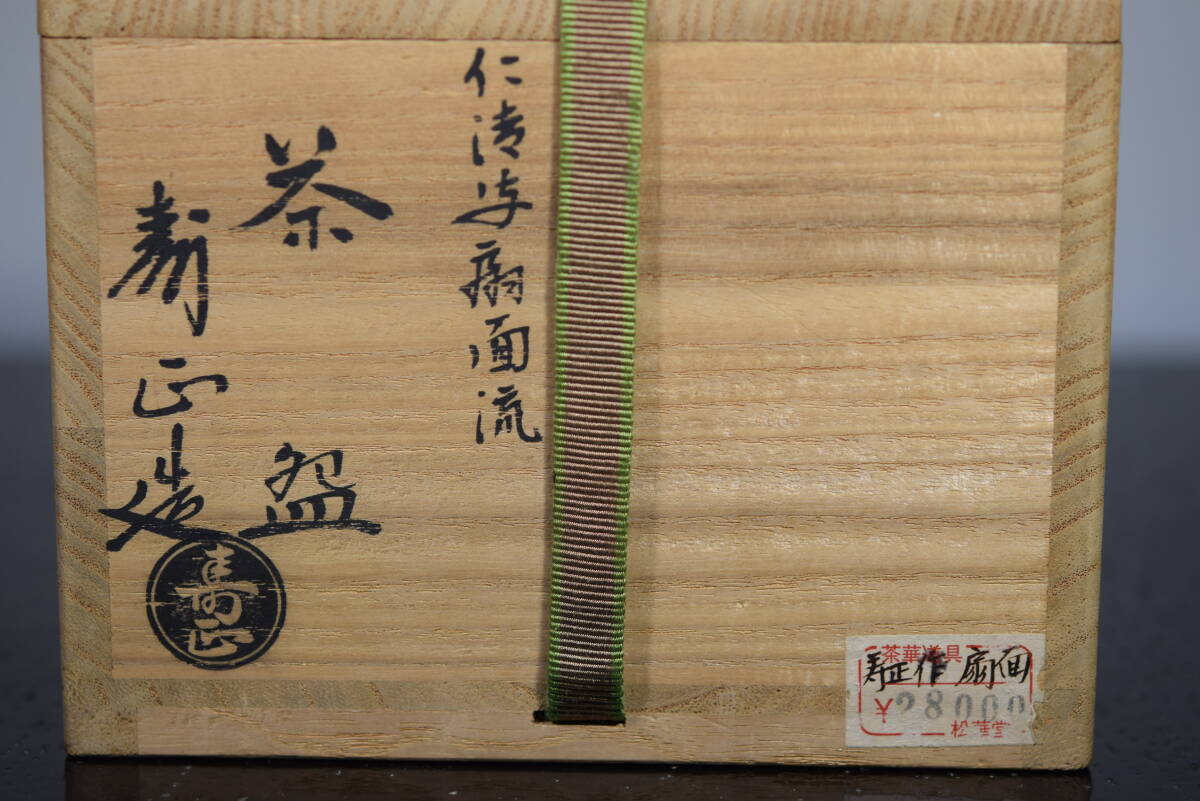 仁清写扇面流
茶盌
寿正造
寿正
茶華道具
寿正作 扇面
¥28000
松華堂